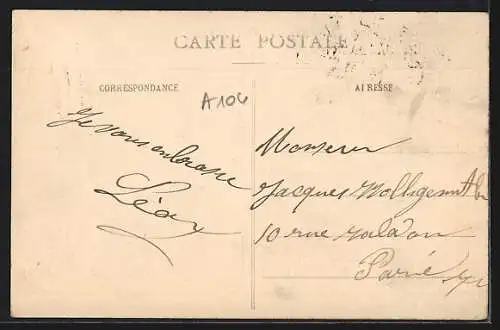 CARTE POSTALE
CORRESPONDANCE
A106
Je vous embrasse
Léon
ADRESSE
Monsieur
Jacques
10 rue
Paris